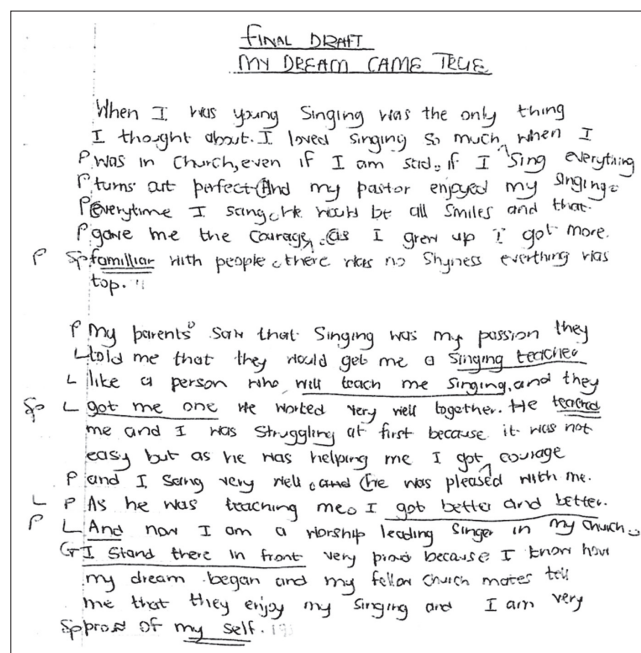 FINAL DRAFT
MY DREAM CAME TRUE
When I was young Singing was the only thing
I thought about. I loved singing so much, when I
P was in Church, even if I am sad, if I sing everything
P turns out perfect. And my pastor enjoyed my singing.
P Everytime I sang, He would be all smiles and that
P gave me the courage, as I grew up I got more.
P Sp familliar with people, there was no Shyness everthing was
top.
P My parents saw that Singing was my passion they
L told me that they would get me a singing teacher
L like a person who will teach me singing, and they
Sp L got me one We worked very well together. He teached
me and I was struggling at first because it was not
easy but as he was helping me I got courage
P and I sang very well, and he was pleased with me.
L P As he was teaching me, I got better and better.
P L And now I am a worship leading singer in my church.
G I stand there in front very proud because I know how
my dream began and my fellow church mates tell
me that they enjoy my singing and I am very
Sp proud of my self.